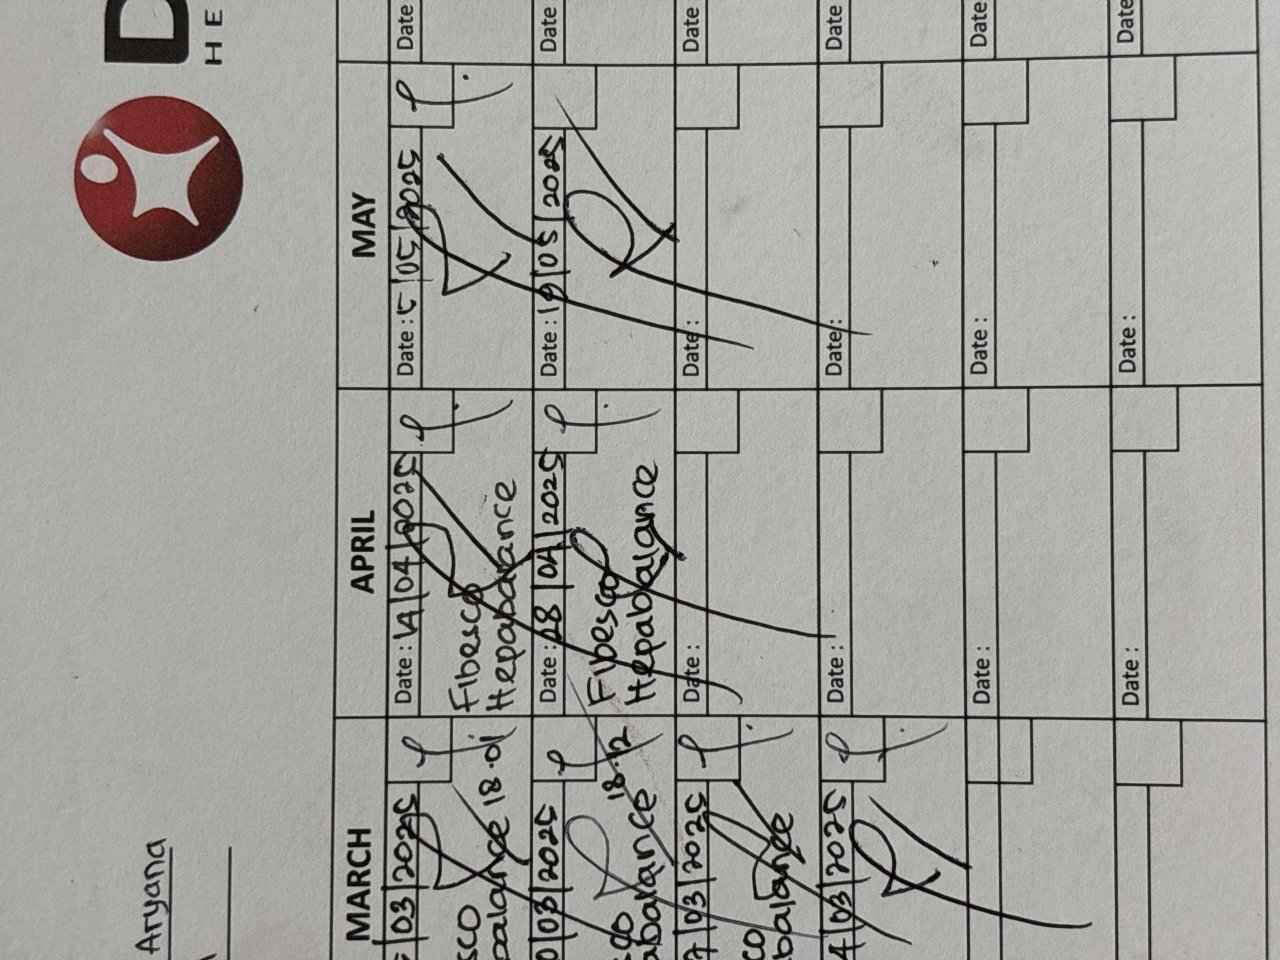 D
HE
Aryana
MARCH
APRIL
MAY
/03/2025
Date : 14/04/2025
Date : 5/05/2025
Date
sco
balance 18.01
Fibesco
Hepabalance
0/03/2025
Date : 28/04/2025
Date : 19/05/2025
Date
abalance 18.12
Fibesco
Hepabalance
7/03/2025
Date :
Date :
Date
co
balance
4/03/2025
Date :
Date :
Date
Date :
Date :
Date
Date :
Date :
Date